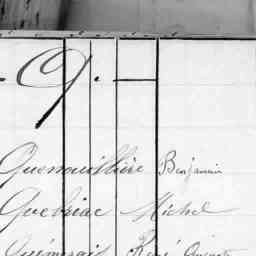 Q.
Quenouillière Benjamin
Quebriac Michel
Quémerais René